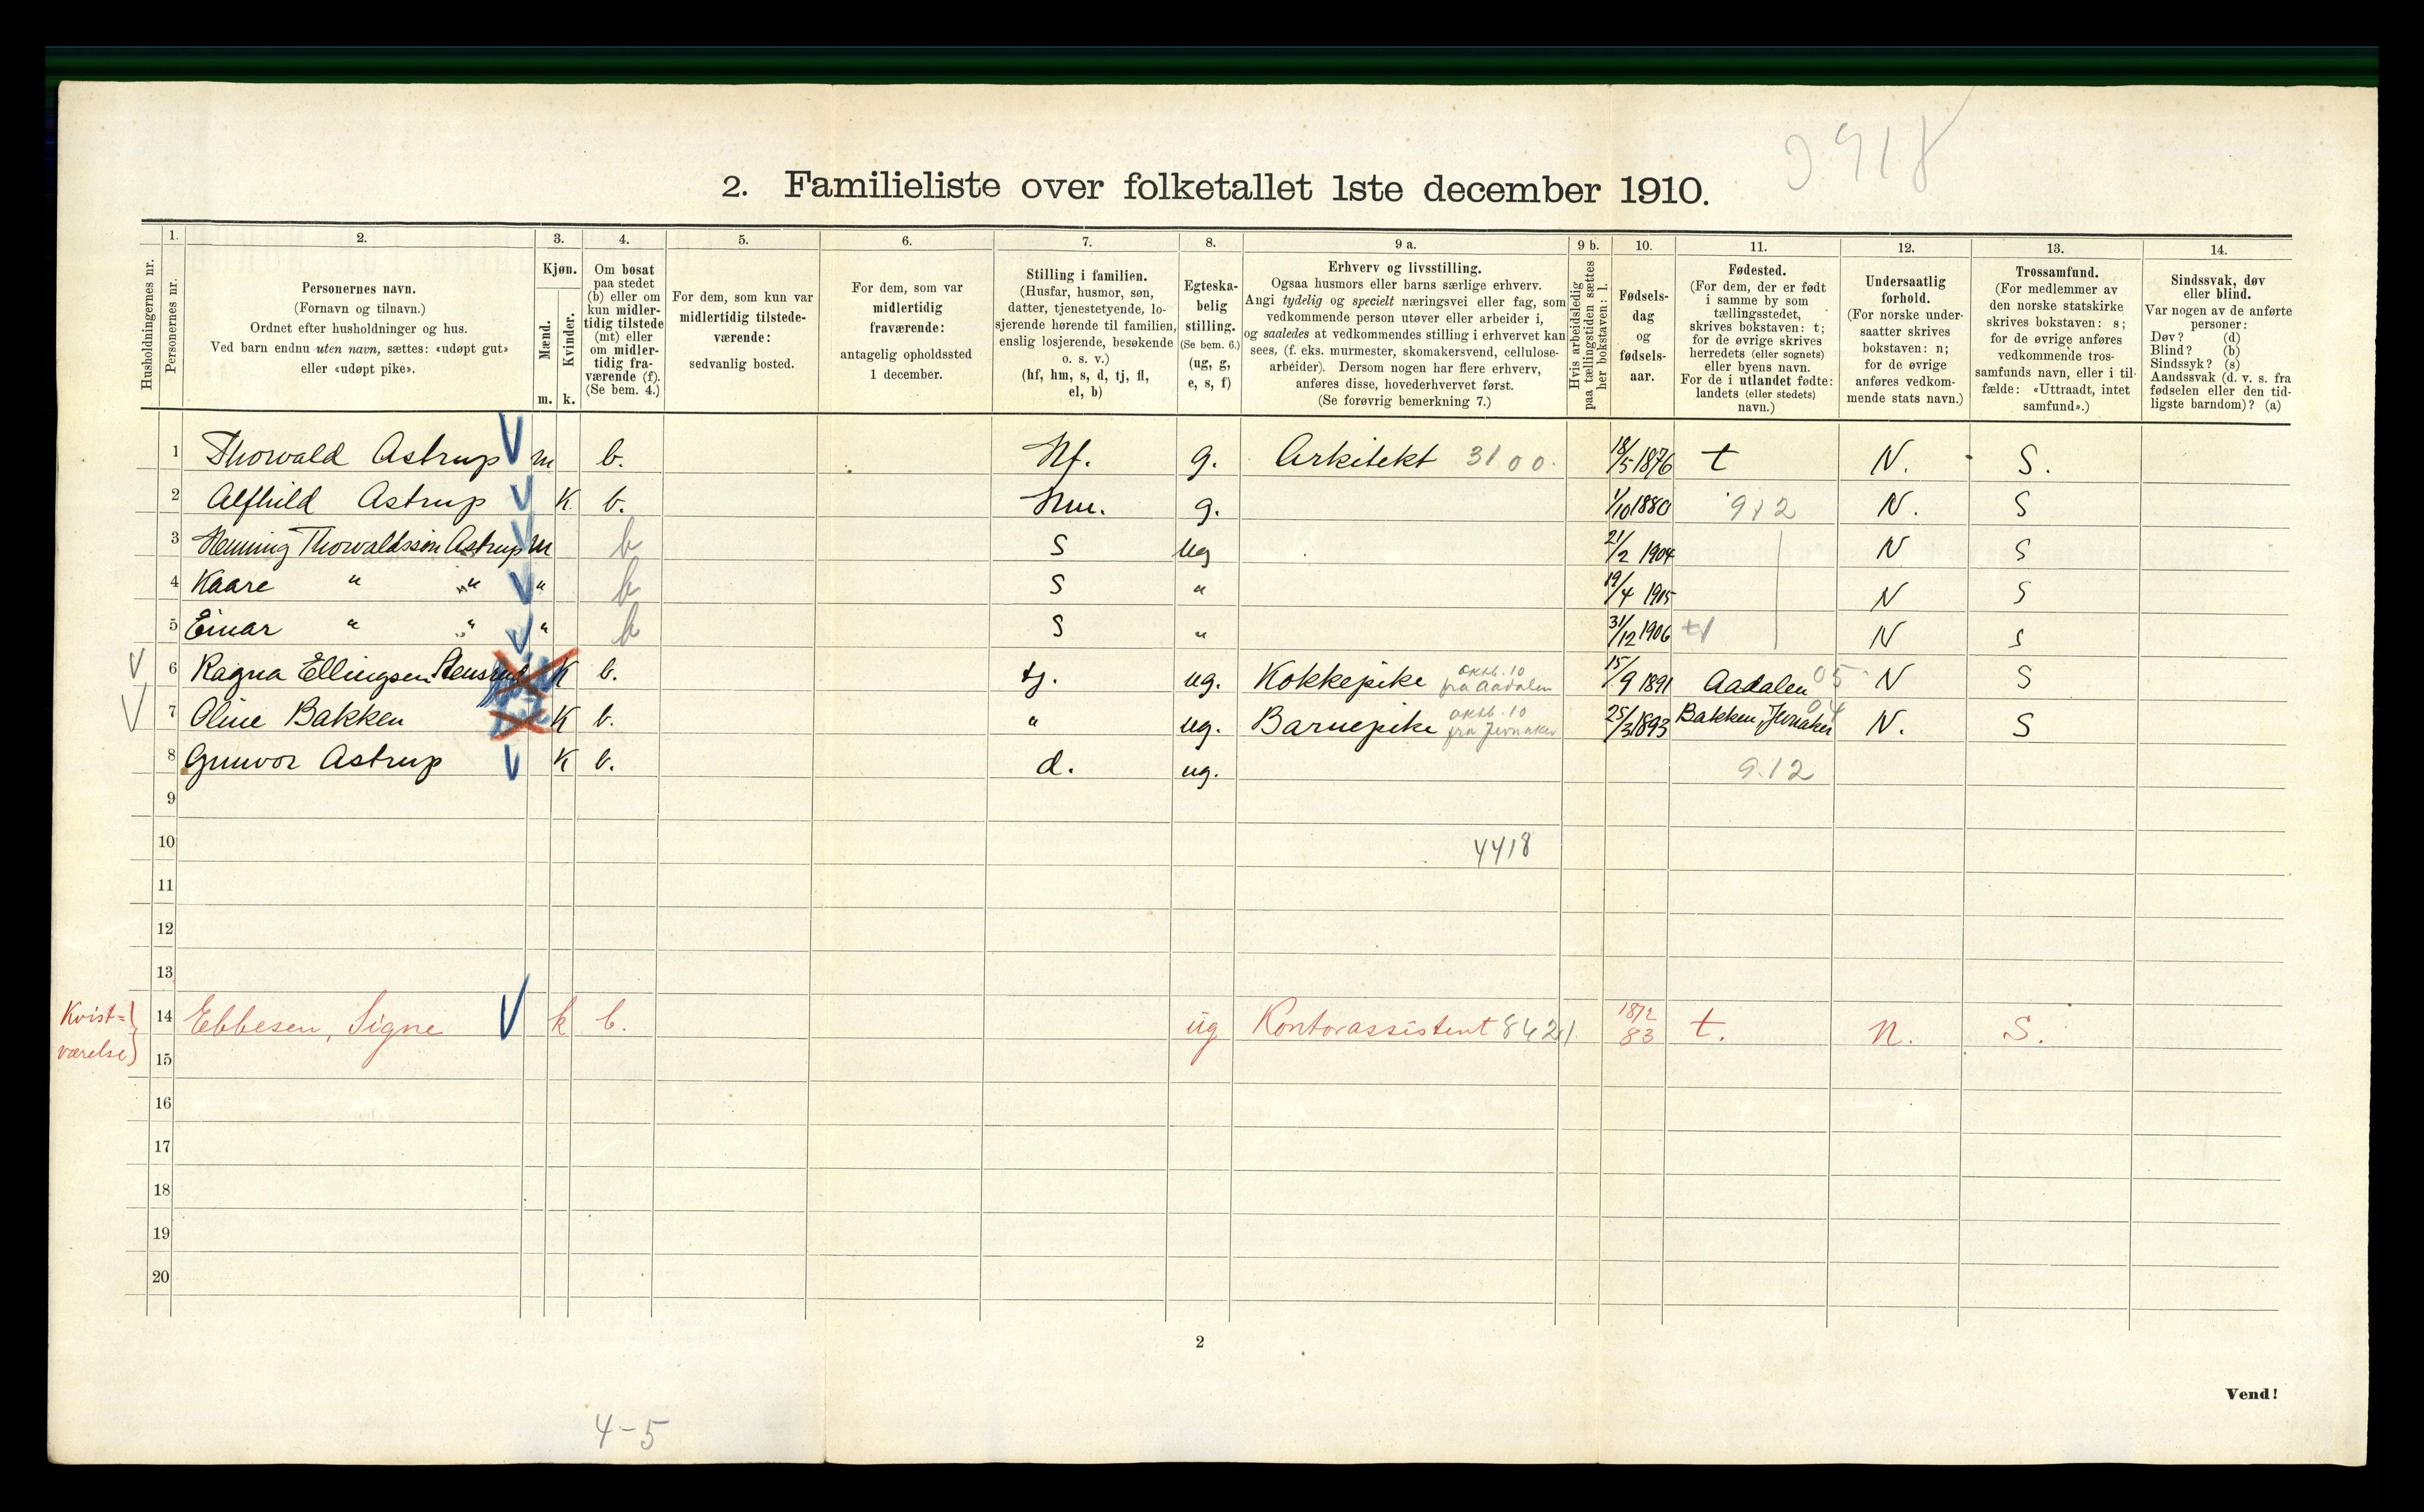 3918
2. Familieliste over folketallet 1ste december 1910.
1. 2. 3. 4. 5. 6. 7. 8. 9 a. 9 b. 10. 11. 12. 13. 14.
Husholdningernes nr.
Personernes nr.
Personernes navn.
(Fornavn og tilnavn.)
Ordnet efter husholdninger og hus.
Ved barn endnu uten navn, sættes: «udøpt gut»
eller «udøpt pike».
Kjøn.
Mænd.
Kvinder.
m. k.
Om bosat
paa stedet
(b) eller om
kun midler-
tidig tilstede
(mt) eller
om midler-
tidig fra-
værende (f).
(Se bem. 4.)
For dem, som kun var
midlertidig tilstede-
værende:
sedvanlig bosted.
For dem, som var
midlertidig
fraværende:
antagelig opholdssted
1 december.
Stilling i familien.
(Husfar, husmor, søn,
datter, tjenestetyende, lo-
sjerende hørende til familien,
enslig losjerende, besøkende
o. s. v.)
(hf, hm, s, d, tj, fl,
el, b)
Egteska-
belig
stilling.
(Se bem. 6.)
(ug, g,
e, s, f)
Erhverv og livsstilling.
Ogsaa husmors eller barns særlige erhverv.
Angi tydelig og specielt næringsvei eller fag, som
vedkommende person utøver eller arbeider i,
og saaledes at vedkommendes stilling i erhvervet kan
sees, (f. eks. murmester, skomakersvend, cellulose-
arbeider). Dersom nogen har flere erhverv,
anføres disse, hovederhvervet først.
(Se forøvrig bemerkning 7.)
Hvis arbeidsledig
paa tællingstiden sættes
her bokstaven: l.
Fødsels-
dag
og
fødsels-
aar.
Fødested.
(For dem, der er født
i samme by som
tællingsstedet,
skrives bokstaven: t;
for de øvrige skrives
herredets (eller sognets)
eller byens navn.
For de i utlandet fødte:
landets (eller stedets)
navn.)
Undersaatlig
forhold.
(For norske under-
saatter skrives
bokstaven: n;
for de øvrige
anføres vedkom-
mende stats navn.)
Trossamfund.
(For medlemmer av
den norske statskirke
skrives bokstaven: s;
for de øvrige anføres
vedkommende tros-
samfunds navn, eller i til-
fælde: «Uttraadt, intet
samfund».)
Sindssvak, døv
eller blind.
Var nogen av de anførte
personer:
Døv? (d)
Blind? (b)
Sindssyk? (s)
Aandssvak (d. v. s. fra
fødselen eller den tid-
ligste barndom)? (a)
1 Thorvald Astrup m b. Hf. g. Arkitekt 3100. 18/5 1876 t N. S.
2 Alfhild Astrup K b. Hm. g. 1/10 1880 912 N. S
3 Henning Thorvaldssøn Astrup m b S ug 21/2 1904 N S
4 Kaare " " " b S " 19/4 1905 N S
5 Einar " " " b S " 31/12 1906 N S
6 Ragna Ellingsen Stensrud K b. tj. ug. Kokkepike oktb. 10 fra Aadalen 15/9 1891 Aadalen 05 N S
7 Oline Bakken K b. " ug. Barnepike oktb. 10 fra Jevnaker 25/3 1893 Bakken, Jevnaker N. S
8 Gunvor Astrup K b. d. ug. 912
9
10 4418
11
12
13
Kvist-
værelse
14 Ebbesen, Signe k b. ug Kontorassistent 8421 18/2 83 t. n. S.
15
16
17
18
19
20
2
Vend!
4-5